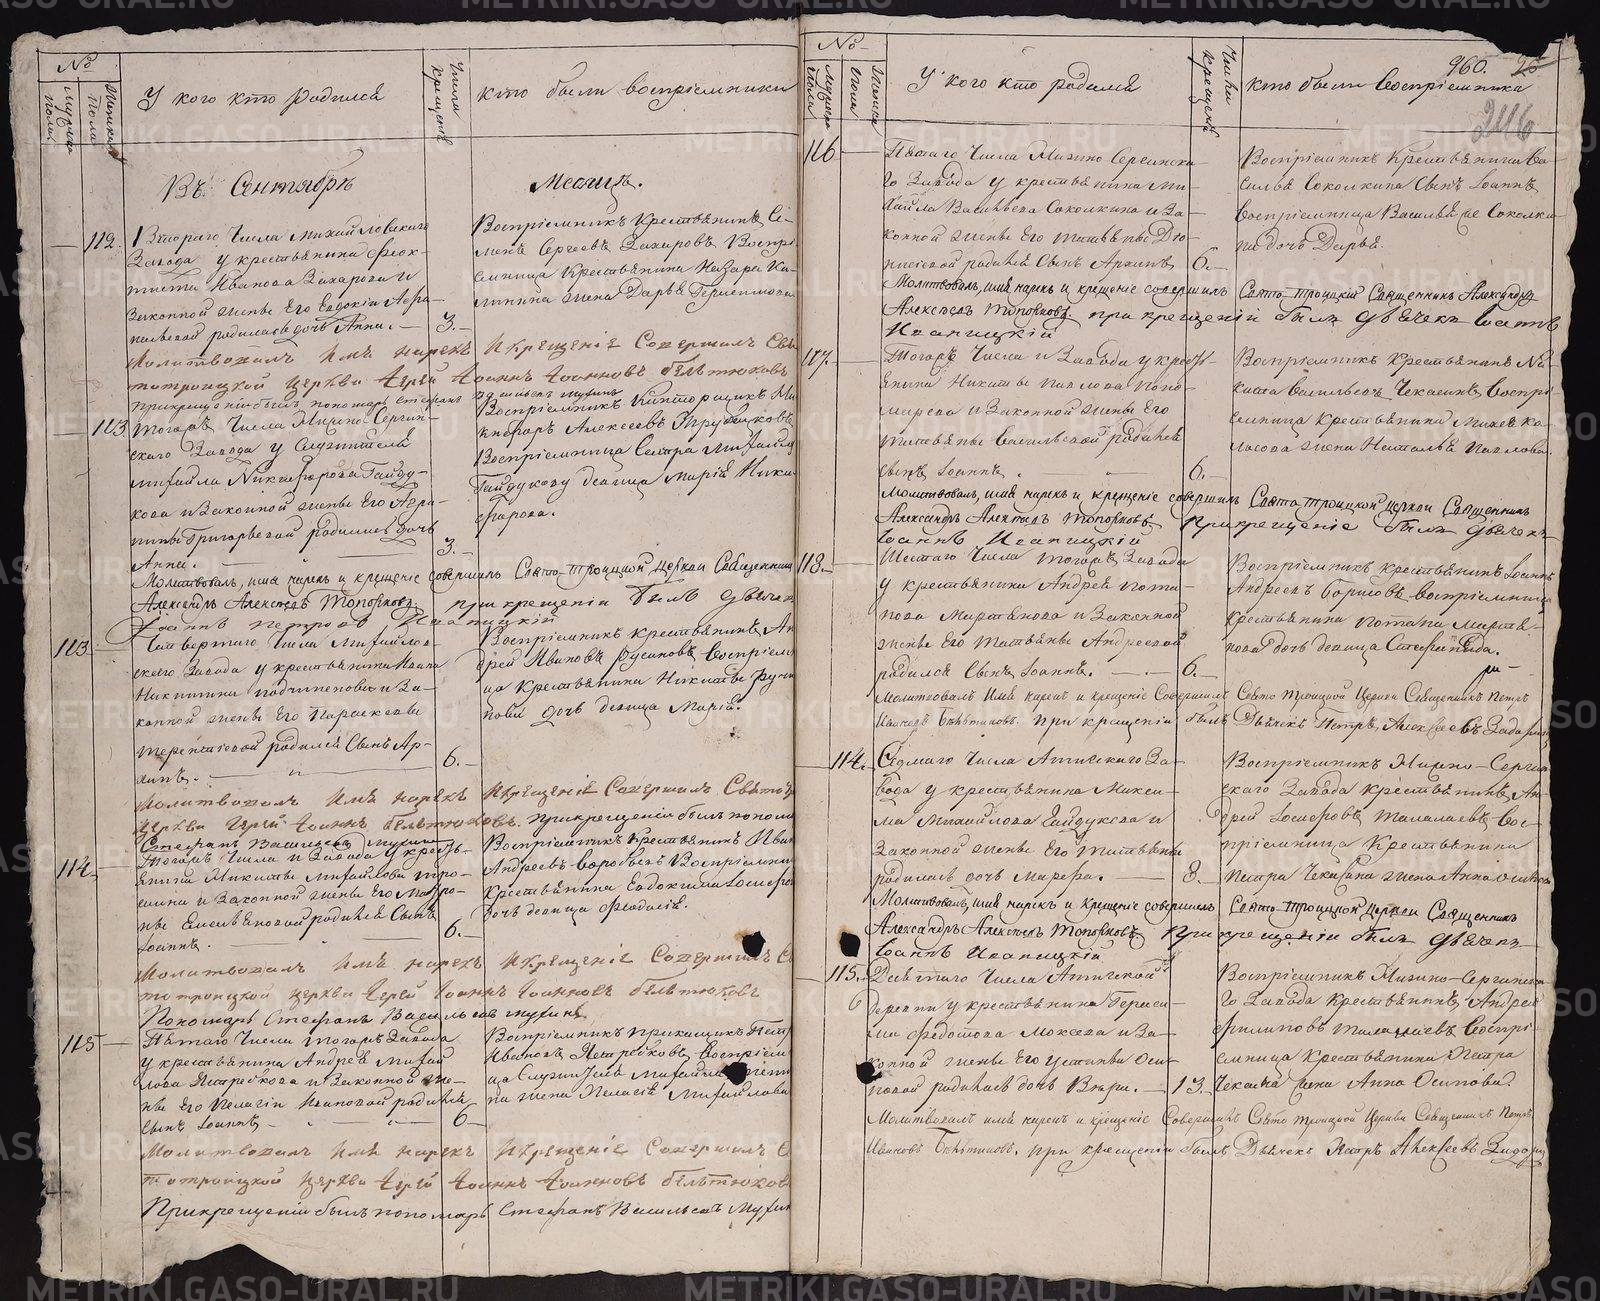 №
мужеска пола
женска пола
У кого кто родился
Числа крещенiя
кто были воспрiемники
Въ Сентябрѣ Месяцѣ.
112.
Втораго Числа Михайловскаго
Завода у крестьянина Феок-
тиста Иванова Захарова и
Законной жены Его Евдокiи
родилась дочь Анна. 3.
Воспрiемникъ Крестьянинъ Се-
менъ Сергеевъ Захаровъ Воспрi-
емница Крестьянина Назара Ка-
линина жена Дарья Герасимова
Молитвовалъ Имя нарекъ Икрещенiе Совершилъ Свя
тотроицкой церкви Iерей Iоаннъ Iоанновъ бѣльтюковъ
Прикрещенiи былъ пономарь Стефанъ Васильевъ Мухинъ
113
Тогожъ Числа Нижно Сергин-
скаго Завода у Служителя
Михайла Никифорова Гайду-
кова и Законной жены Его Агра-
пины Григорьевой родилась дочь
Анна. 3.
Воспрiемникъ Конторщикъ Ни
кифоръ Алексеевъ Трубщиковъ
Воспрiемница Сестра Михайлу
Гайдукову девица Марiя Ники-
фарова.
Молитвовалъ, имя нарекъ и крещенiе совершилъ Свято-Троицкой церкви Священникъ
Александръ Алексеевъ Топорковъ. при крещенiи былъ дьячекъ
Iоаннъ Петровъ Иваницкiй
113
Четвертаго Числа Михайлов-
скаго Завода у крестьянина Ивана
Никитина подчиненова и За-
конной жены Его Параскевы
Терентiевой родился Сынъ Ар-
хипъ. 6.
Воспрiемникъ крестьянинъ Ан
дрей Ивановъ Русиновъ Воспрiемни
ца Крестьянина Никиты Руси
новы дочь девица Марiя.
Молитвовалъ Имя нарекъ Икрещенiе Совершилъ Свято
церкви Iерей Iоаннъ бѣльтюковъ. Прикрещенiи былъ поном
Стефанъ Васильевъ Мухинъ
114
Тогожъ Числа и Завода у кресть-
янина Никиты Михайлова тро-
сина и Законной жены Его Матро-
ны Емельяновой родился Сынъ
Iоаннъ. 6.
Воспрiемникъ Крестьянинъ Иван
Андреевъ воробьевъ Воспрiемни
Крестьянина Евдокима Iосифо
дочь девица Феодосiя.
Молитвовалъ Имя нарекъ Икрещенiе Совершилъ С
тотроицкой церкви Iерей Iоаннъ Iоанновъ бѣльтюковъ
Пономарь Стефанъ Васильевъ Мухинъ
115
Пятаго Числа тогожъ Завода
у крестьянина Андрея Михай
лова Ястребкова и Законной же-
ны Его Пелагiи Ивановой родился
Сынъ Iоаннъ 6
Воспрiемникъ прикащикъ Петр
Ивановъ Ястребковъ Воспрiемни
ца Служителя Михайла
на жена Пелагiя Михайлова
Молитвовалъ Имя нарекъ Икрещенiе Совершилъ С
тотроицкой церкви Iерей Iоаннъ Iоанновъ бѣльтюков
Прикрещенiи былъ пономарь Стефанъ Васильевъ Мухин
№
мужеска пола
женска
У кого кто родился
Числа крещенiя
960. 25
кто были Воспрiемники
246
116
Пятаго Числа Нижно Сергинска-
го Завода у крестьянина Ми-
хайла Васильева Соколкина и За-
конной жены Его Татьяны Дiо-
нисiевой родился Сынъ Архипъ 6.
Воспрiемникъ Крестьянина Ва-
силья Соколкина Сынъ Iоаннъ
Воспрiемница Василья же Соколки-
на дочь Дарья.
Молитвовалъ, имя нарекъ и крещенiе совершилъ Свято-Троицкiй Священникъ Александръ
Алексеевъ Топорковъ при крещенiи былъ дьячекъ Iоаннъ
Иваницкiй
117.
Тогожъ Числа и Завода у кресть-
янина Никиты Павлова Поно-
марева и Законной жены Его
Татьяны Васильевой родился
Сынъ Iоаннъ. 6.
Воспрiемникъ крестьянинъ Ни-
кита Васильевъ Чекасинъ Воспрi-
емница крестьянина Михея Ка-
ласова жена Наталья Павлова.
Молитвовалъ, имя нарекъ и крещенiе совершилъ Свято-Троицкой церкви Священникъ
Александръ Алексеевъ Топорковъ, при крещенiе былъ дьячекъ
Iоаннъ Иваницкiй
118.
Шестаго Числа тогожъ Завода
у крестьянина Андрея Пота-
пова Мартьянова и Законной
жены Его Татьяны Андреевой
родился Сынъ Iоаннъ. 6.
Воспрiемникъ крестьянинъ Iоаннъ
Андреевъ Борисовъ воспрiемница
крестьянина Потапа Мартья-
нова дочь девица Стефанида.
Молитвовалъ Имя нарекъ и крещенiе Совершилъ Свято Троицкой Церкви Священникъ Петръ
Ивановъ Бѣльтиковъ. при крещенiи былъ Дьячекъ Петръ Алексеевъ
114.
Седмаго Числа Атигскаго За-
вода у крестьянина Макси-
ма Михайлова Гайдукова и
Законной жены Его Татьяны
родилась дочь Марфа. 8.
Воспрiемникъ Нижно-Сергин-
скаго Завода крестьянинъ Ан-
дрей Iосифовъ Талалаевъ Вос-
прiемница Крестьянина
Петра Чекасина жена Анна Осипова
Молитвовалъ, имя нарекъ и крещенiе совершилъ Свято-Троицкой церкви Священникъ
Александръ Алексеевъ Топорковъ при крещенiи былъ дьячекъ
Iоаннъ Иваницкiй
115.
Девятаго Числа Атигской
деревни у крестьянина Гераси-
ма Федотова Мокеева и За-
конной жены Его Устиньи Оси-
повой родилась дочь Вера. 13.
Воспрiемникъ Нижно-Сергинска-
го Завода крестьянинъ Андрей
Филиповъ Талашаевъ Воспрi-
емница крестьянина Петра
Чекасина жена Анна Осипова.
Молитвовалъ имя нарекъ и крещенiе Совершилъ Свято Троицкой Церкви Священникъ Петръ
Ивановъ Бѣльтиковъ. при крещенiи былъ Дьячекъ Петръ Алексеевъ
METRIKI.GASO-URAL.RU